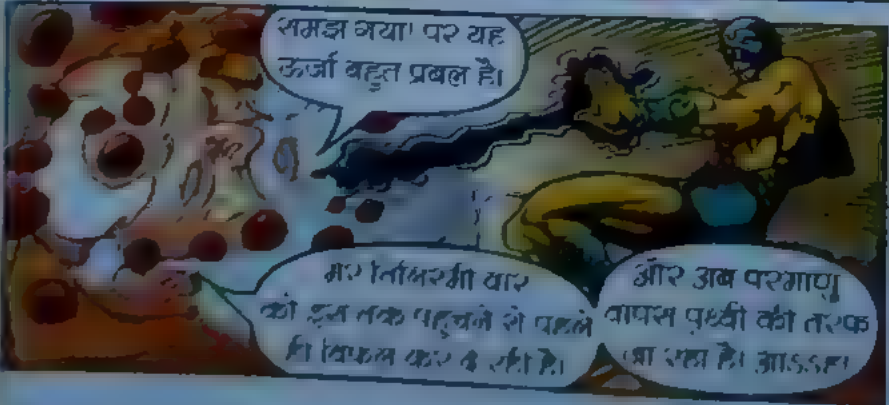 समझ गया! पर यह
ऊर्जा बहुत प्रबल है।
मेरे तिलिस्मी वार
को इस तक पहुचने से पहले
ही विफल कर दे रही है।
और अब परमाणु
वापस पृथ्वी की तरफ
आ रहा है। आऽऽऽह।